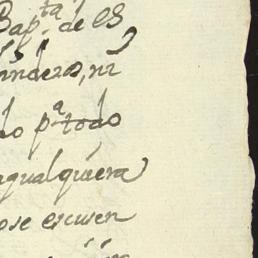 Bap^ta de es
nndezo, ni
do p^a todo
aqualquiera
ose escusen